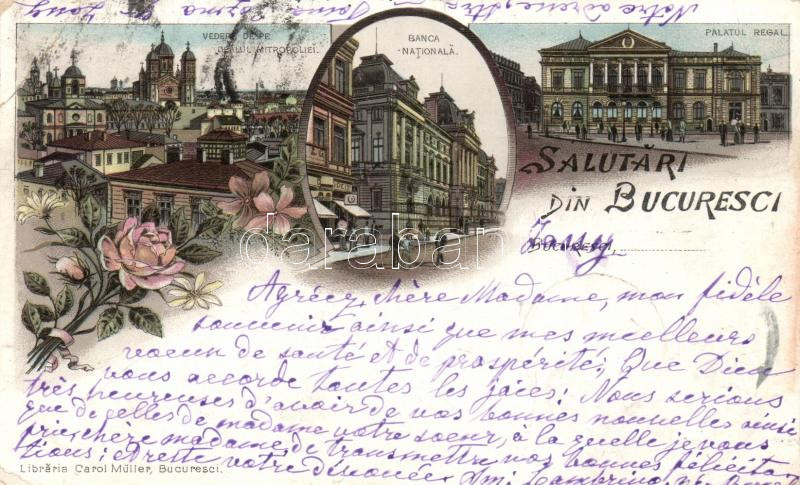 VEDERE DE PE
DEALUL MITROPOLIEI.
BANCA
NAȚIONALĂ.
PALATUL REGAL.
SALUTĂRI
DIN BUCURESCI
BUCURESCI,
darabanth
Agréez, chère Madame, mon fidèle
souvenir ainsi que mes meilleurs
voeux de santé et de prospérité; Que Dieu
vous accorde toutes les joies; Nous serions
très heureuses d'avoir de vos bonnes nouvelles ainsi
que de celles de madame votre soeur, à la quelle je vous
prie, chère madame, de transmettre nos bonnes félicita
tions; et reste votre dévouée
Librăria Carol Müller, Bucuresci.